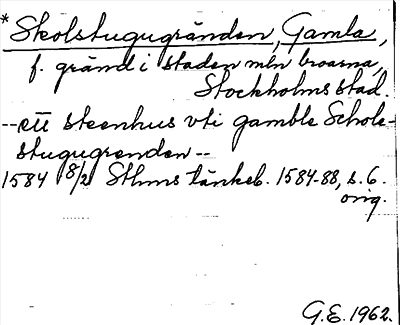 *Skolstugugränden, Gamla,
f. gränd i staden mln broarna,
Stockholms stad.
--ett steenhus vti gamble Schole-
stugugrenden--
1584 8/2 Sthms tänkeb. 1584-88, s. 6.
orig.
G.E. 1962.